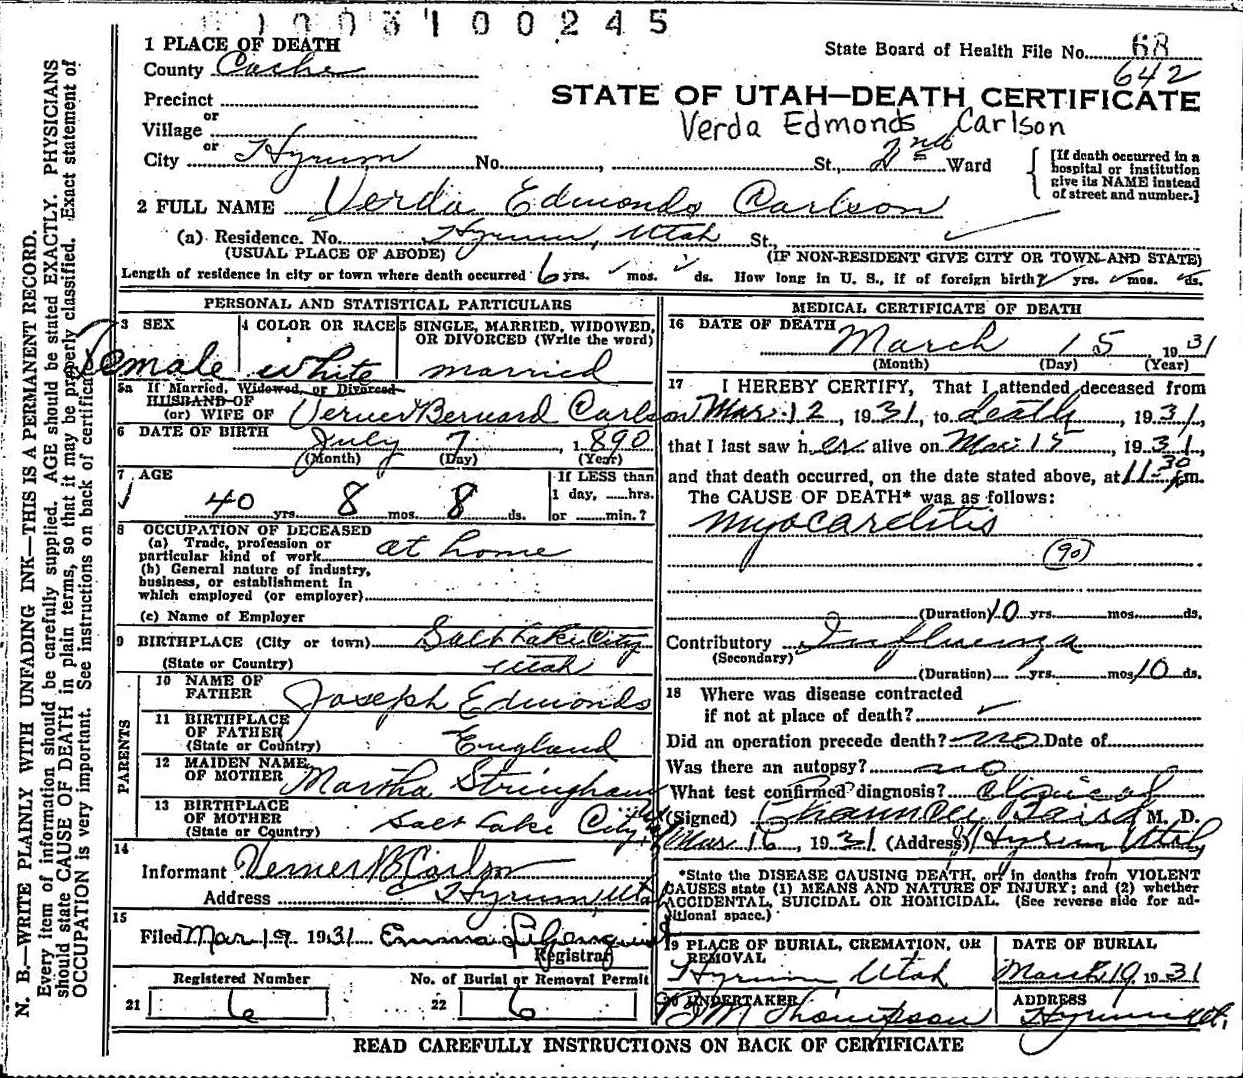 1003100245
1 PLACE OF DEATH
State Board of Health File No. 68
642
County Cache
Precinct
or
Village
or
City Hyrum No. , St., 2nd Ward
STATE OF UTAH—DEATH CERTIFICATE
Verda Edmonds Carlson
[If death occurred in a hospital or institution give its NAME instead of street and number.]
2 FULL NAME Verda Edmonds Carlson
(a) Residence. No. Hyrum, Utah St.,
(USUAL PLACE OF ABODE) (IF NON-RESIDENT GIVE CITY OR TOWN AND STATE)
Length of residence in city or town where death occurred 6 yrs. mos. ds. How long in U. S., if of foreign birth? yrs. mos. ds.
PERSONAL AND STATISTICAL PARTICULARS
3 SEX Female
4 COLOR OR RACE white
5 SINGLE, MARRIED, WIDOWED, OR DIVORCED (Write the word) married
5a If Married, Widowed, or Divorced
HUSBAND OF
(or) WIFE OF Verner Bernard Carlson
6 DATE OF BIRTH July 7 1890
(Month) (Day) (Year)
7 AGE
40 yrs. 8 mos. 8 ds.
If LESS than
1 day, hrs.
or min.?
8 OCCUPATION OF DECEASED
(a) Trade, profession or
particular kind of work at home
(b) General nature of industry,
business, or establishment in
which employed (or employer)
(c) Name of Employer
9 BIRTHPLACE (City or town) Salt Lake City
(State or Country) Utah
PARENTS
10 NAME OF FATHER Joseph Edmonds
11 BIRTHPLACE OF FATHER (State or Country) England
12 MAIDEN NAME OF MOTHER Martha Stringham
13 BIRTHPLACE OF MOTHER (State or Country) Salt Lake City
14
Informant Verner B Carlson
Address Hyrum, Utah
15
Filed Mar 19 1931 Emma
Registrar
Registered Number
21 6
No. of Burial or Removal Permit
22 6
MEDICAL CERTIFICATE OF DEATH
16 DATE OF DEATH March 15 1931
(Month) (Day) (Year)
17 I HEREBY CERTIFY, That I attended deceased from
Mar. 12, 1931, to death, 1931,
that I last saw her alive on Mar. 15, 1931,
and that death occurred, on the date stated above, at 11 30 m.
The CAUSE OF DEATH* was as follows:
Myocarditis
(90)
(Duration) 10 yrs. mos. ds.
Contributory Influenza
(Secondary)
(Duration) yrs. mos. 10 ds.
18 Where was disease contracted
if not at place of death?
Did an operation precede death? no Date of
Was there an autopsy? no
What test confirmed diagnosis? clinical
(Signed) M. D.
Mar. 16, 1931 (Address) Hyrum Utah
*State the DISEASE CAUSING DEATH, or, in deaths from VIOLENT
CAUSES state (1) MEANS AND NATURE OF INJURY; and (2) whether
ACCIDENTAL, SUICIDAL OR HOMICIDAL. (See reverse side for ad-
ditional space.)
19 PLACE OF BURIAL, CREMATION, OR REMOVAL Hyrum Utah
DATE OF BURIAL March 19 1931
20 UNDERTAKER Thompson
ADDRESS Hyrum Ut.
READ CAREFULLY INSTRUCTIONS ON BACK OF CERTIFICATE
N. B.—WRITE PLAINLY WITH UNFADING INK—THIS IS A PERMANENT RECORD.
Every item of information should be carefully supplied. AGE should be stated EXACTLY. PHYSICIANS
should state CAUSE OF DEATH in plain terms, so that it may be properly classified. Exact statement of
OCCUPATION is very important. See instructions on back of certificate.